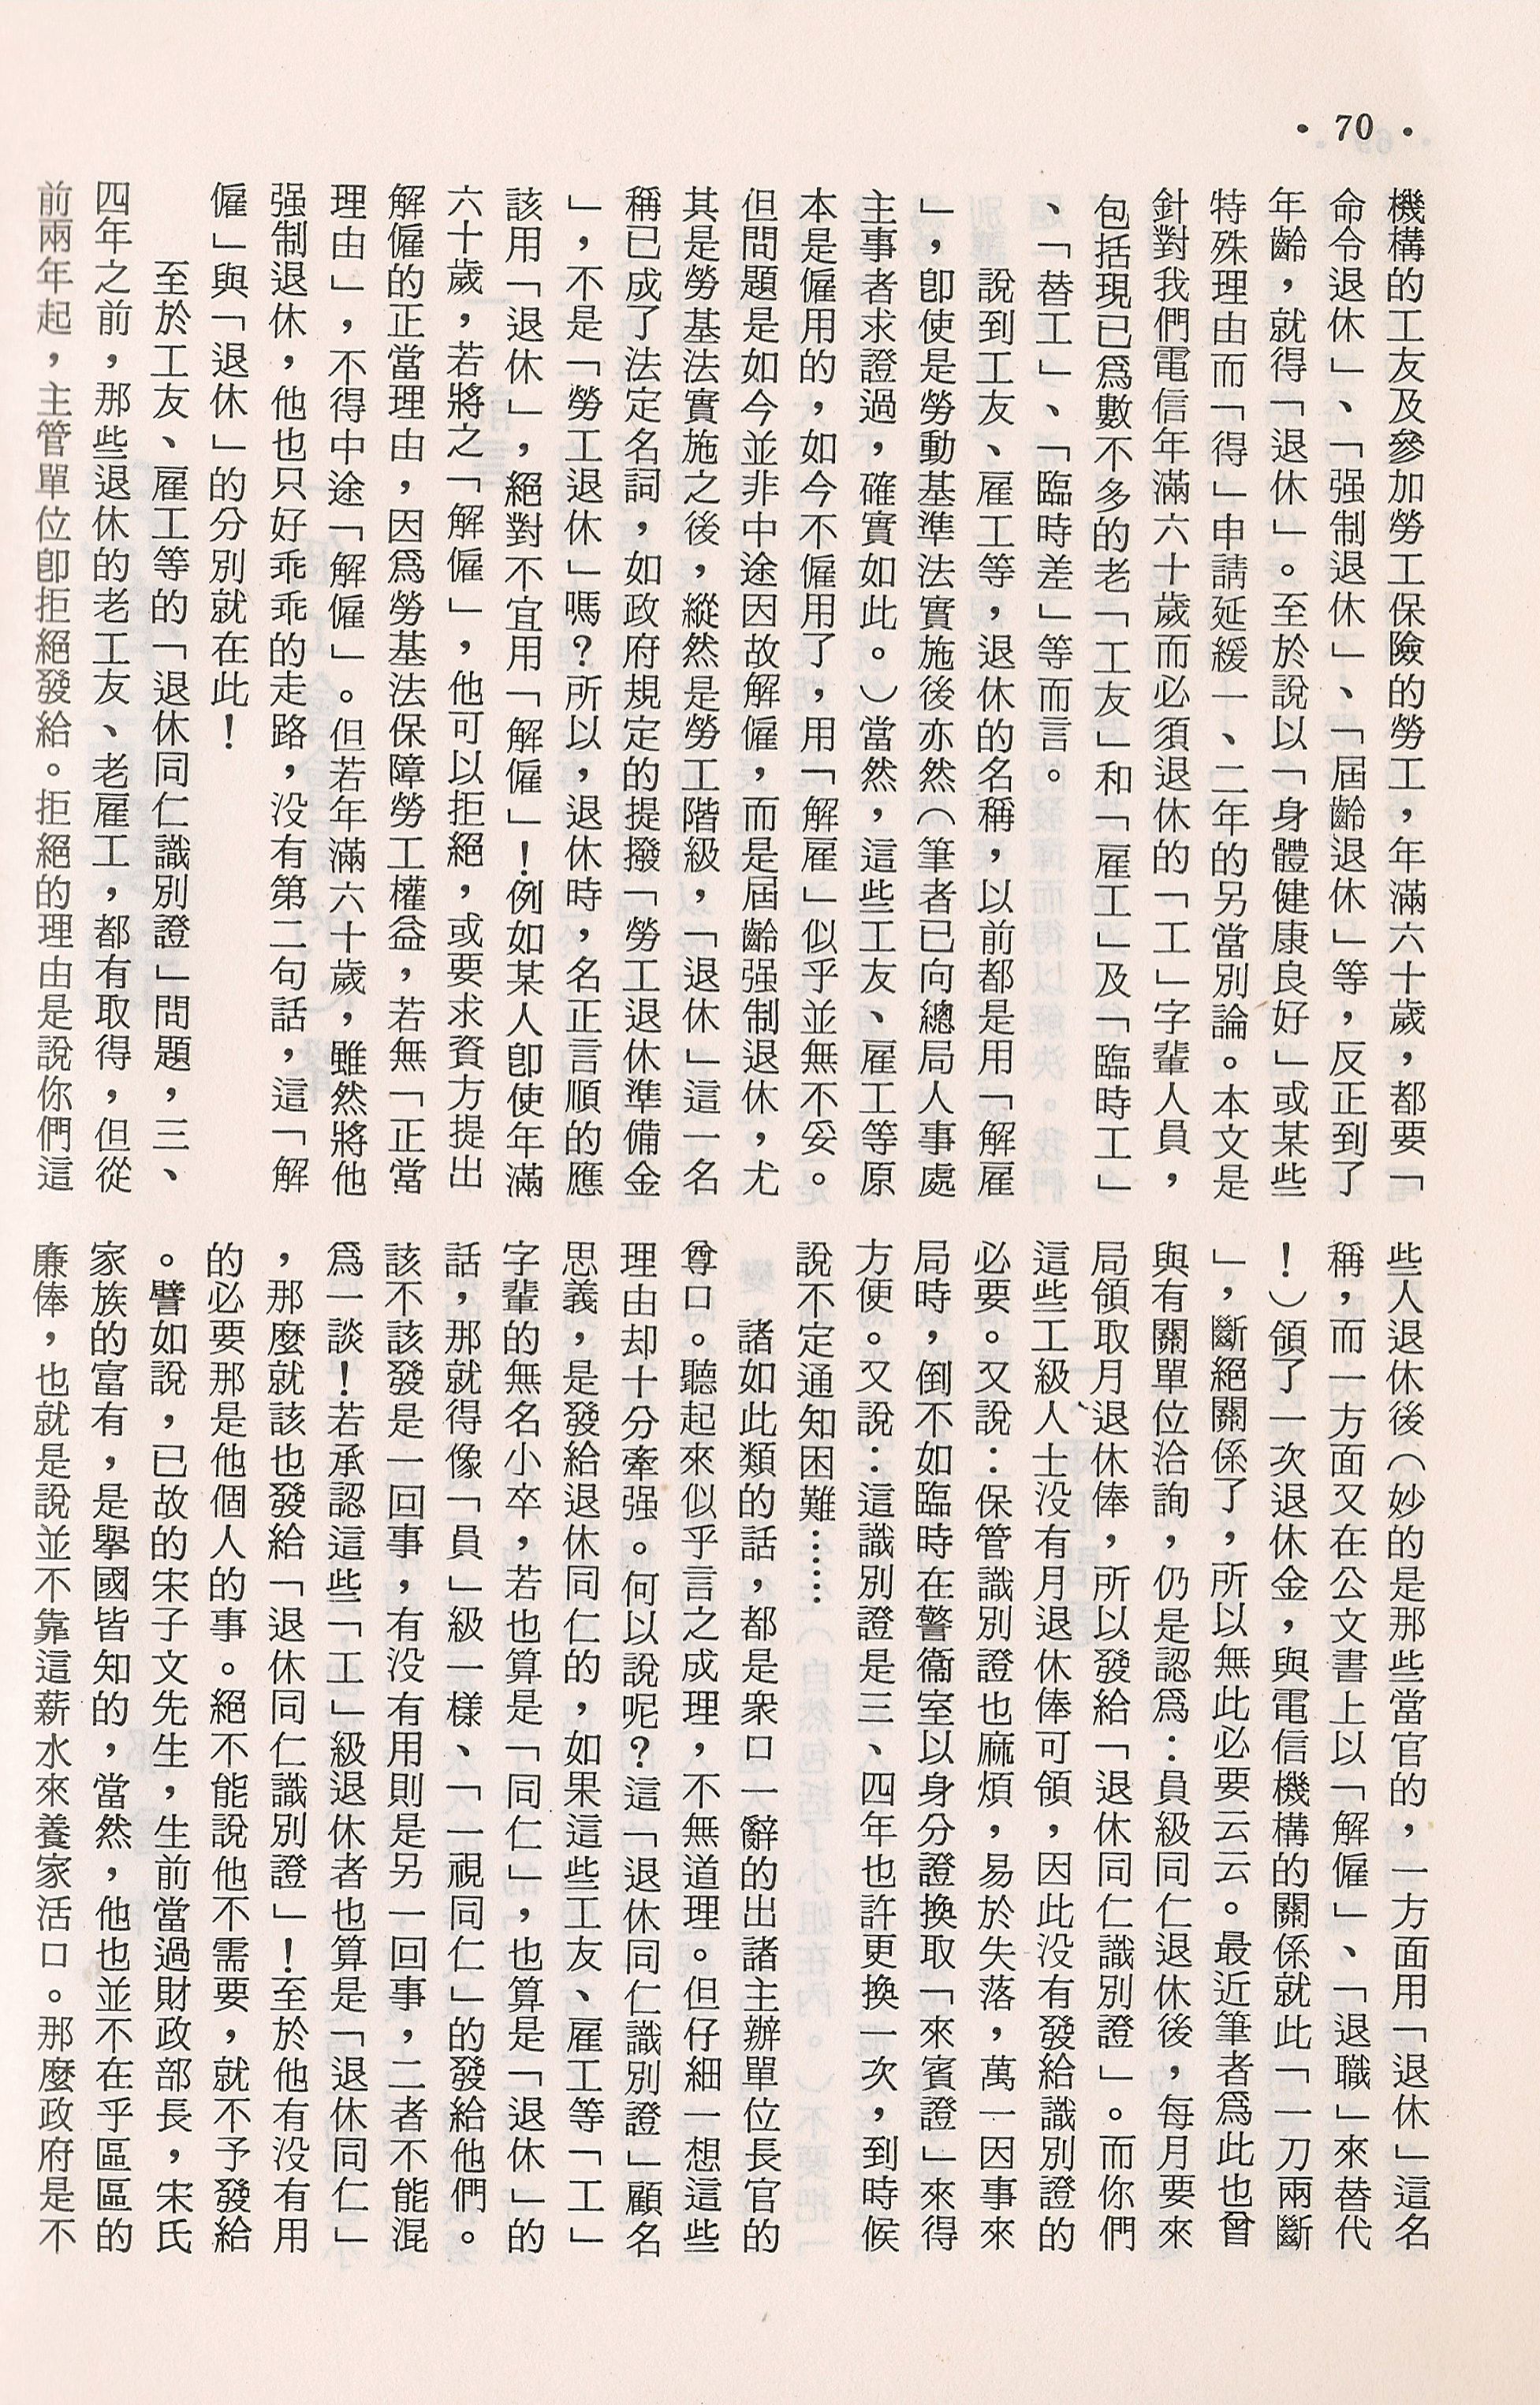 • 70 •
機構的工友及參加勞工保險的勞工，年滿六十歲，都要「
命令退休」、「强制退休」、「屆齡退休」等，反正到了
年齡，就得「退休」。至於說以「身體健康良好」或某些
特殊理由而「得」申請延緩一、二年的另當別論。本文是
針對我們電信年滿六十歲而必須退休的「工」字輩人員，
包括現已爲數不多的老「工友」和「雇工」及「臨時工」
、「替工」、「臨時差」等而言。
說到工友、雇工等，退休的名稱，以前都是用「解雇
」，卽使是勞動基準法實施後亦然（筆者已向總局人事處
主事者求證過，確實如此。）當然，這些工友、雇工等原
本是僱用的，如今不僱用了，用「解雇」似乎並無不妥。
但問題是如今並非中途因故解僱，而是屆齡强制退休，尤
其是勞基法實施之後，縱然是勞工階級，「退休」這一名
稱已成了法定名詞，如政府規定的提撥「勞工退休準備金
」，不是「勞工退休」嗎？所以，退休時，名正言順的應
該用「退休」，絕對不宜用「解僱」！例如某人卽使年滿
六十歲，若將之「解僱」，他可以拒絕，或要求資方提出
解僱的正當理由，因爲勞基法保障勞工權益，若無「正當
理由」，不得中途「解僱」。但若年滿六十歲，雖然將他
强制退休，他也只好乖乖的走路，没有第二句話，這「解
僱」與「退休」的分別就在此！
至於工友、雇工等的「退休同仁識別證」問題，三、
四年之前，那些退休的老工友、老雇工，都有取得，但從
前兩年起，主管單位卽拒絕發給。拒絕的理由是說你們這
些人退休後（妙的是那些當官的，一方面用「退休」這名
稱，而一方面又在公文書上以「解僱」、「退職」來替代
！）領了一次退休金，與電信機構的關係就此「一刀兩斷
」，斷絕關係了，所以無此必要云云。最近筆者爲此也曾
與有關單位洽詢，仍是認爲：員級同仁退休後，每月要來
局領取月退休俸，所以發給「退休同仁識別證」。而你們
這些工級人士没有月退休俸可領，因此没有發給識別證的
必要。又說：保管識別證也麻煩，易於失落，萬一因事來
局時，倒不如臨時在警衞室以身分證換取「來賓證」來得
方便。又說：這識別證是三、四年也許更換一次，到時候
說不定通知困難……
諸如此類的話，都是衆口一辭的出諸主辦單位長官的
尊口。聽起來似乎言之成理，不無道理。但仔細一想這些
理由却十分牽强。何以說呢？這「退休同仁識別證」顧名
思義，是發給退休同仁的，如果這些工友、雇工等「工」
字輩的無名小卒，若也算是「同仁」，也算是「退休」的
話，那就得像「員」級一樣、「一視同仁」的發給他們。
該不該發是一回事，有没有用則是另一回事，二者不能混
爲一談！若承認這些「工」級退休者也算是「退休同仁」
，那麼就該也發給「退休同仁識別證」！至於他有没有用
的必要那是他個人的事。絕不能說他不需要，就不予發給
。譬如說，已故的宋子文先生，生前當過財政部長，宋氏
家族的富有，是舉國皆知的，當然，他也並不在乎區區的
廉俸，也就是說並不靠這薪水來養家活口。那麼政府是不